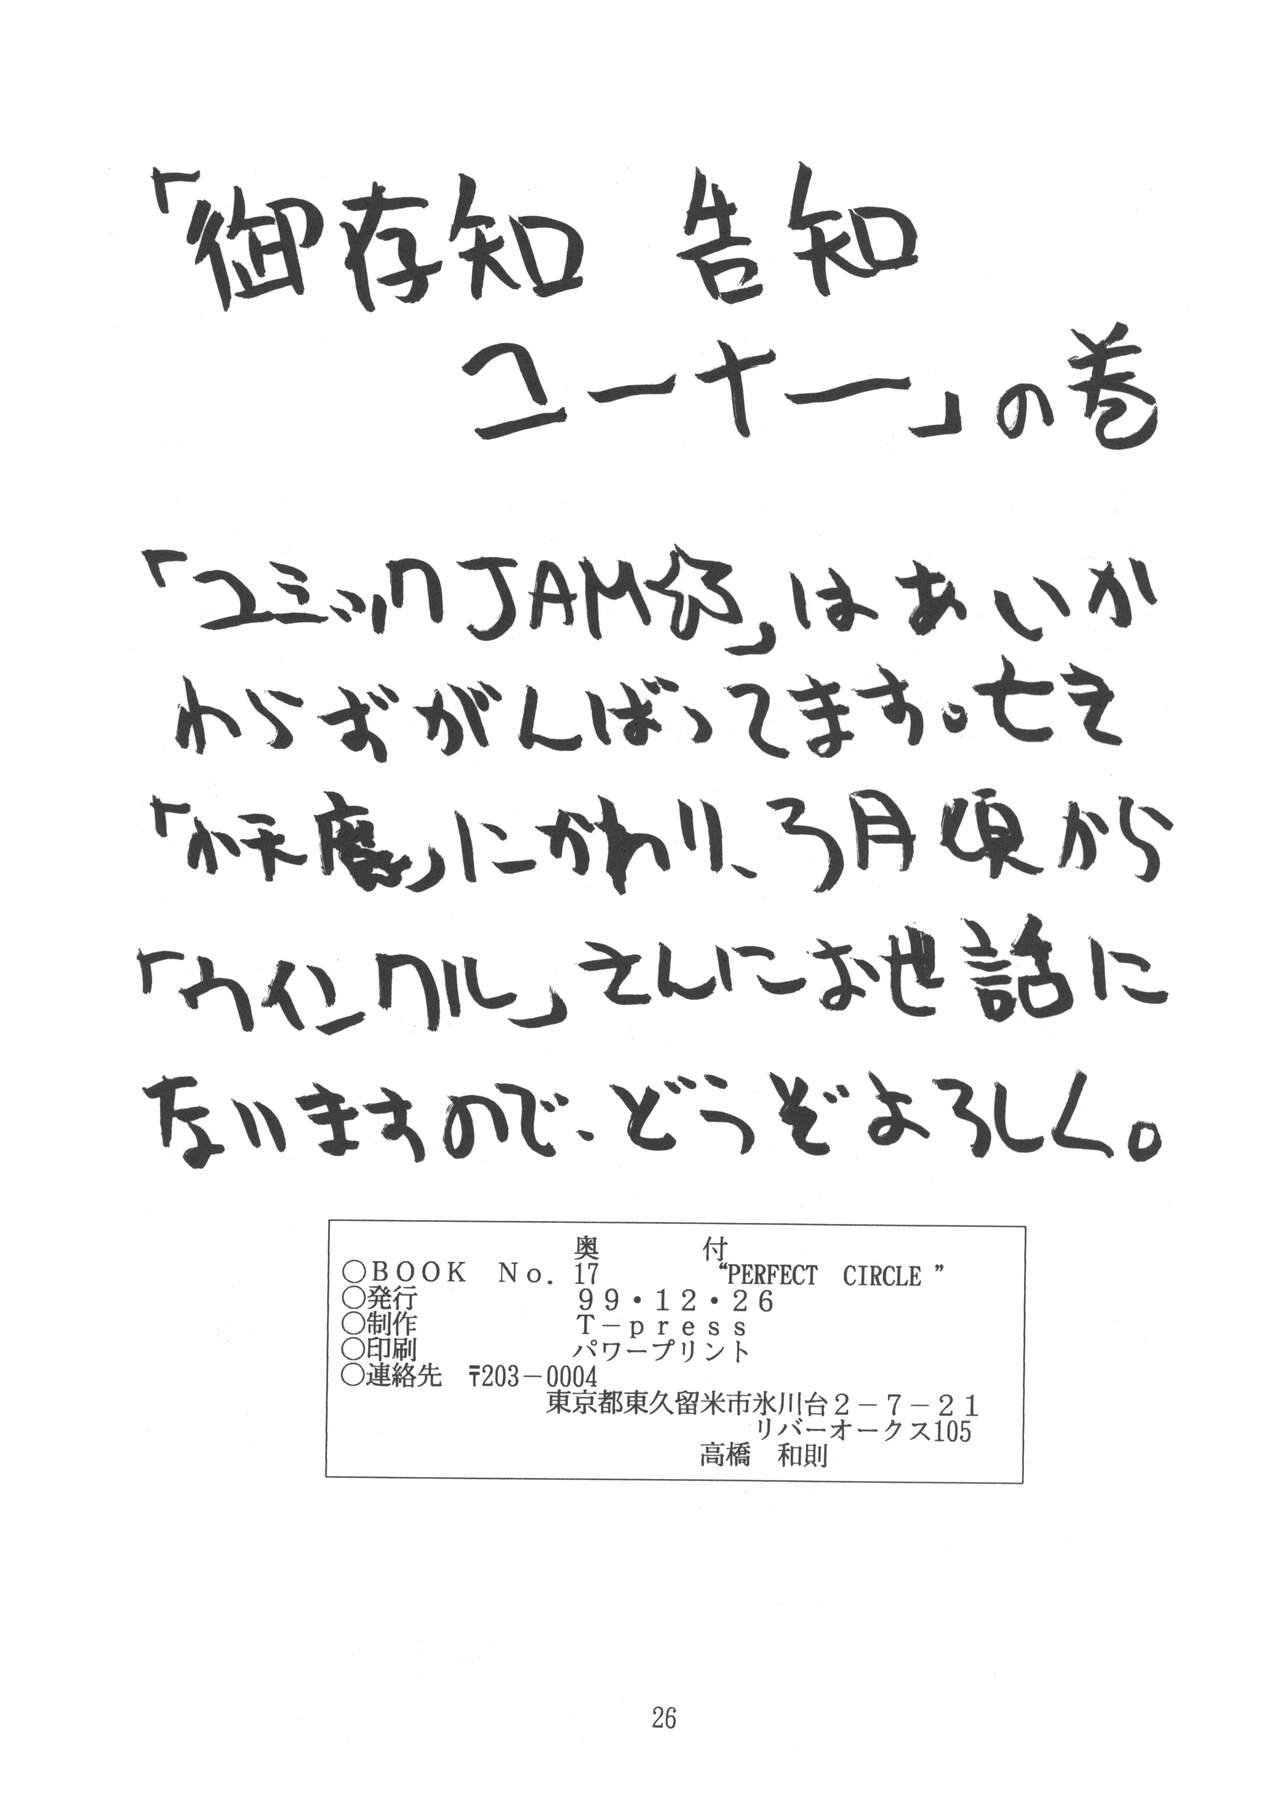 「御存知 告知
コーナー」の巻
「コミックJAM」はあいか
わらずがんばってます。
「夭魔」にかわり、3月頃から
「ウインクル」さんにお世話に
なりますので、どうぞよろしく。
奥　付
○ＢＯＯＫ　Ｎｏ．17　“PERFECT CIRCLE ”
○発行　９９・１２・２６
○制作　Ｔ－ｐｒｅｓｓ
○印刷　パワープリント
○連絡先　〒203－0004
東京都東久留米市氷川台２－７－２１
リバーオークス105
高橋　和則
26